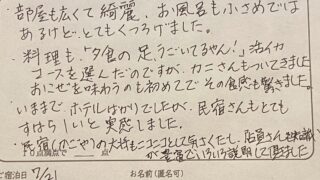 ・部屋も広くて綺麗、お風呂も小さめでは
あるけどとてもくつろげました。
・料理も、"夕食の足、うごいてるやん!"活イカ
コースを選んだのですが、カニさんもついてきました
おこぜを味わうのも初めてで その食感も驚きました。
・いままで、ホテルばかりでしたが、民宿さんもとても
すばらしいと実感しました。
・民宿しかごやりの大将もニコニコして気さくだし、店員さんも
が豊富でいろいろ説明して頂きました
10点満点で 点
ご宿泊日 7/21 お名前(匿名可)